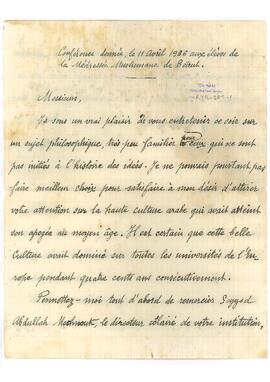 Conférence donnée, le 11 avril 1936 aux élèves de
la Médressée Musulmane de Beirut.
Messieurs,
Je sens un vrai plaisir de vous entretenir ce soir sur
un sujet philosophique très peu familier pour ceux qui ne sont
pas initiés à l'histoire des idées. Je ne pouvais pourtant pas
faire meilleur choix pour satisfaire à mon désir d'attirer
votre attention sur la haute culture arabe qui avait atteint
son apogée au moyen âge. Il est certain que cette belle
culture avait dominé sur toutes les universités de l'Eu-
rope pendant quatre cents ans consécutivement.
Permettez-moi tout d'abord de remercier Sayyed
Abdullah le directeur de votre institution,